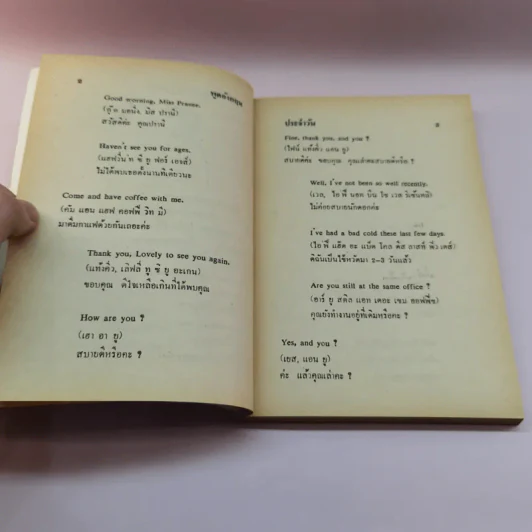 พูดอังกฤษ
Good morning, Miss Pranee.
สวัสดีค่ะ คุณปรานี
Haven't see you for ages.
ไม่ได้พบเธอตั้งนานทีเดียวนะ
Come and have coffee with me.
(คัม แอน แฮฟ คอฟฟี่ วิท มี)
มาดื่มกาแฟด้วยกันเถอะค่ะ
Thank you, Lovely to see you again.
(แท้งคิ่ว, เลิฟลี่ ทู ซี ยู อะเกน)
ขอบคุณ ดีใจเหลือเกินที่ได้พบคุณ
How are you ?
(เฮา อา ยู)
สบายดีหรือคะ ?
ประจำวัน
Fine, thank you, and you ?
สบายดีค่ะ ขอบคุณ คุณล่ะคะสบายดีหรือ ?
Well, I've not been so well recently.
ไม่ค่อยสบายนักดอกค่ะ
I've had a bad cold these last few days.
ดิฉันเป็นไข้หวัดมา 2-3 วันแล้ว
Are you still at the same office ?
(อาร์ ยู สติล แอท เดอะ เซม ออฟฟิซ)
คุณยังทำงานอยู่ที่เดิมหรือคะ ?
Yes, and you ?
(เยส, แอน ยู)
ค่ะ แล้วคุณเล่าคะ ?